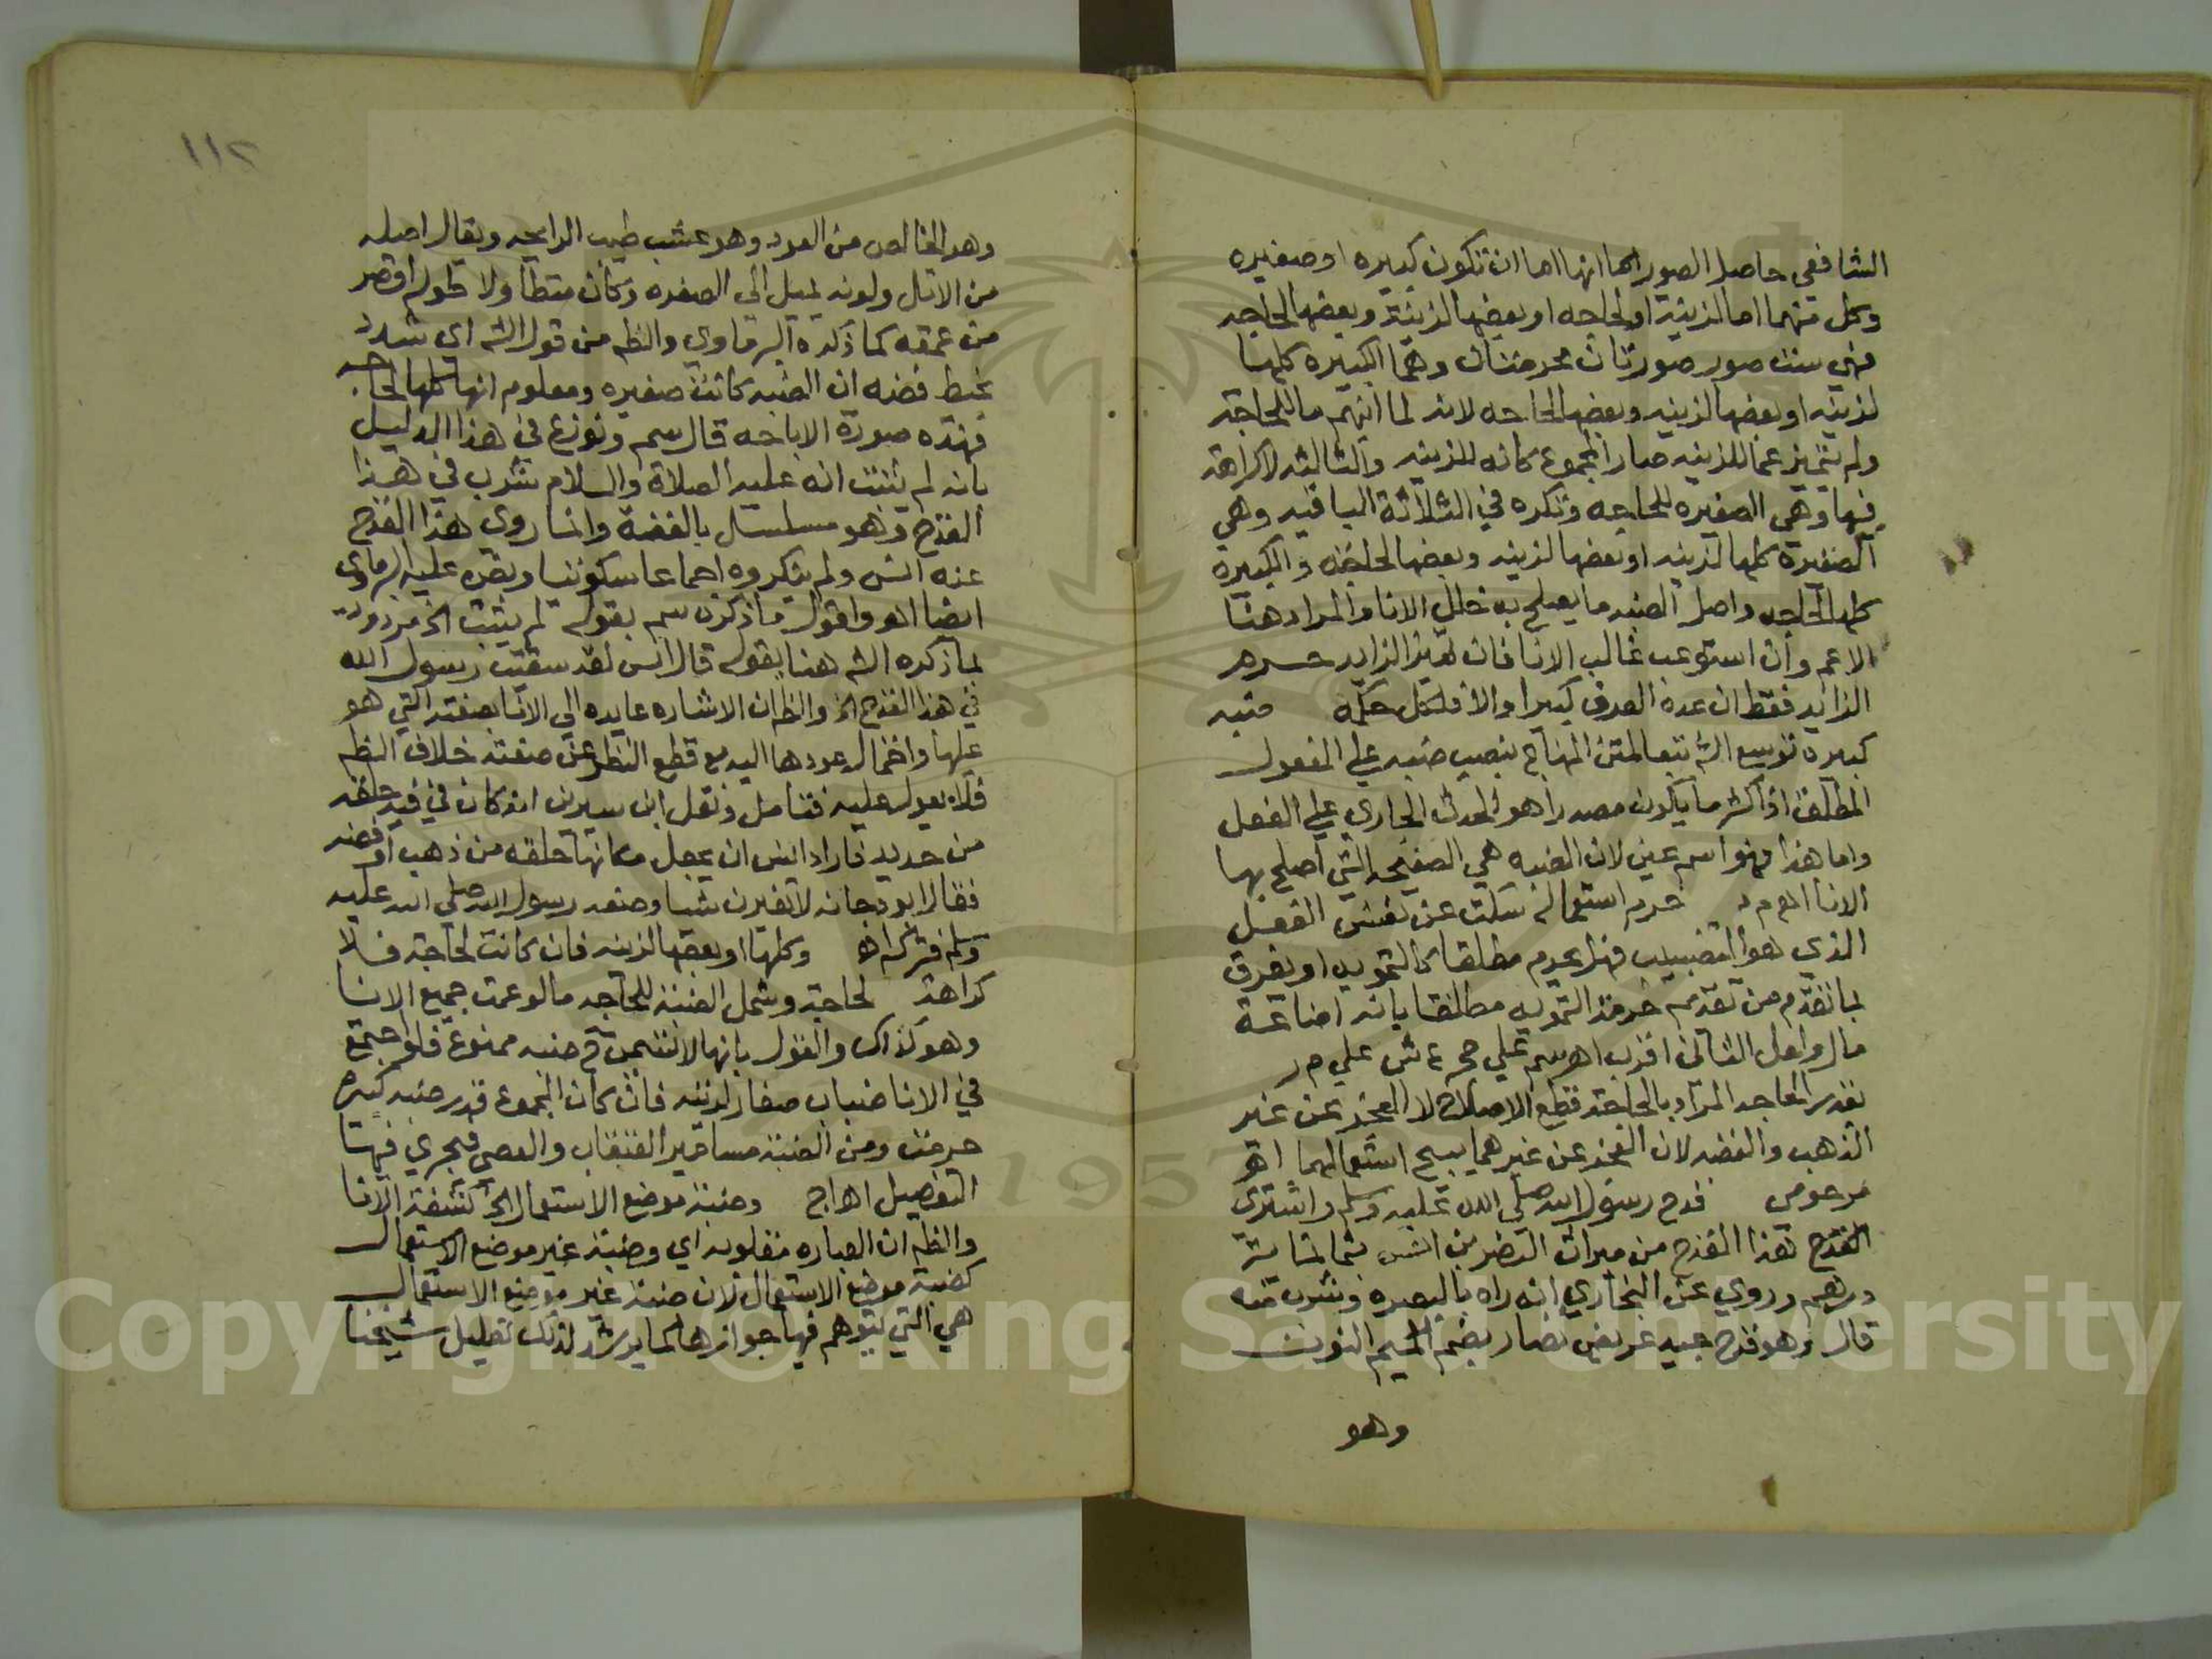 الشافعي حاصل الصور انها اما ان تكون كبيره او صغيره
وكل منهما اما لزينة او لحاجه او بعضها لزينة وبعضها لحاجه
فهي ست صور صورتان محرمتان وهما الكبيره كلها
لزينه او بعضها لزينه وبعضها لحاجه لانه لما انبهم ما للحاجة
ولم يتميز عما للزينه صار المجموع كانه للزينه والثالثه لا كراهة
فيها وهي الصغيره للحاجه وتكره في الثلاثة الباقيه وهي
الصغيرة كلها لزينه او بعضها لزينه وبعضها لحاجه والكبيرة
كلها لحاجه واصل الضبه ما يصلح به خلل الانا والمراد هنا
الاعم وان استوعب غالب الانا فان تميز الزايد حرم
الزائد فقط ان عده العرف كبيرا والا فلكل حكمه ضبه
كبيره توسع الش تبعا لمتن المنهاج بنصب ضبه على المفعول
المطلق اذ اكثر ما يكون مصدرا هو الحدث الجاري على الفعل
واما هذا فهو اسم عين لان الضبه هي الصفيحه التي اصلح بها
الانا اهـ م د حرم استعماله سكت عن نفس الفعل
الذي هو التضبيب فهل يحرم مطلقا كالتمويه او يفرق
بما تقدم من تقدمه حرمة التمويه مطلقا بانه اضاعة
مال ولعل الثاني اقرب اهـ سم على حج ع ش علي م ر
بقدر الحاجه المراد بالحاجة قطع الاصلاح لا العجز عن غير
الذهب والفضه لان العجز عن غيرهما يبيح استعمالهما اهـ
مرحومي قدح رسول الله صلي الله عليه وسلم واشترى
القدح هذا القدح من ميراث النضر بن انس بثمانمائة
درهم وروي عن البخاري انه راه بالبصره وشرب منه
قال وهو قدح جيد عريض نضار بضم الميم النون
وهو
١١٢
وهو الخالص من العود وهو عشب طيب الرايحه ويقال اصله
من الاثل ولونه يميل الي الصفره وكان متطاولا طوله اقصر
من عمقه كما ذكره البرماوي والظم من قول الش اي شدد
بخيط فضه ان الضبه كانت صغيره ومعلوم انها كلها لحاجه
فهذه صورة الاباحه قال سم ونوزع في هذا الدليل
بانه لم يثبت انه عليه الصلاة والسلام شرب في هذا
القدح وهو مسلسل بالفضة وانما روى هذا القدح
عنه انس ولم ينكروه اجماعا سكوتيا ونصه عليه البرماوي
ايضا اهـ واقول ما ذكره سم بقوله لم يثبت الخ مردود
لما ذكره الش هنا بقوله قال انس لقد سقيت رسول الله
في هذا القدح الخ والظ ان الاشاره عايده الي الانا بصفته التي هو
عليها واحتمال عودها اليه مع قطع النظر عن صفته خلاف الظم
فلا يعول عليه فتامل ونقل ابن سيرين انه كان في فيه حلقه
من حديد فاراد انس ان يجعل مكانها حلقه من ذهب او فضه
فقال ابو دجانه لا تغيرن شيا وصنعه رسول الله صلي الله عليه
وسلم فتركه اهـ وكلها او بعضها لزينه فان كانت لحاجة فلا
كراهة لحاجة وشمل الضبة للحاجه ما لو عمت جميع الانا
وهو كذلك والقول بانها لا تسمى ح ضبه ممنوع فلو اجتمع
في الانا ضبات صغار لزينه فان كان المجموع قدر ضبه كبيره
حرمت ومن الضبة مسامير القبقاب والعصي فيجري فيها
التفصيل اهـ اج وضبة موضع الاستعمال الخ كشفة الانا
والظم ان العباره مقلوبه اي وضبة غير موضع الاستعمال
كضبة موضع الاستعمال لان ضبة غير موضع الاستعمال
هي التي يتوهم فيها جوازها كما يرشد لذلك تعليل شيخنا